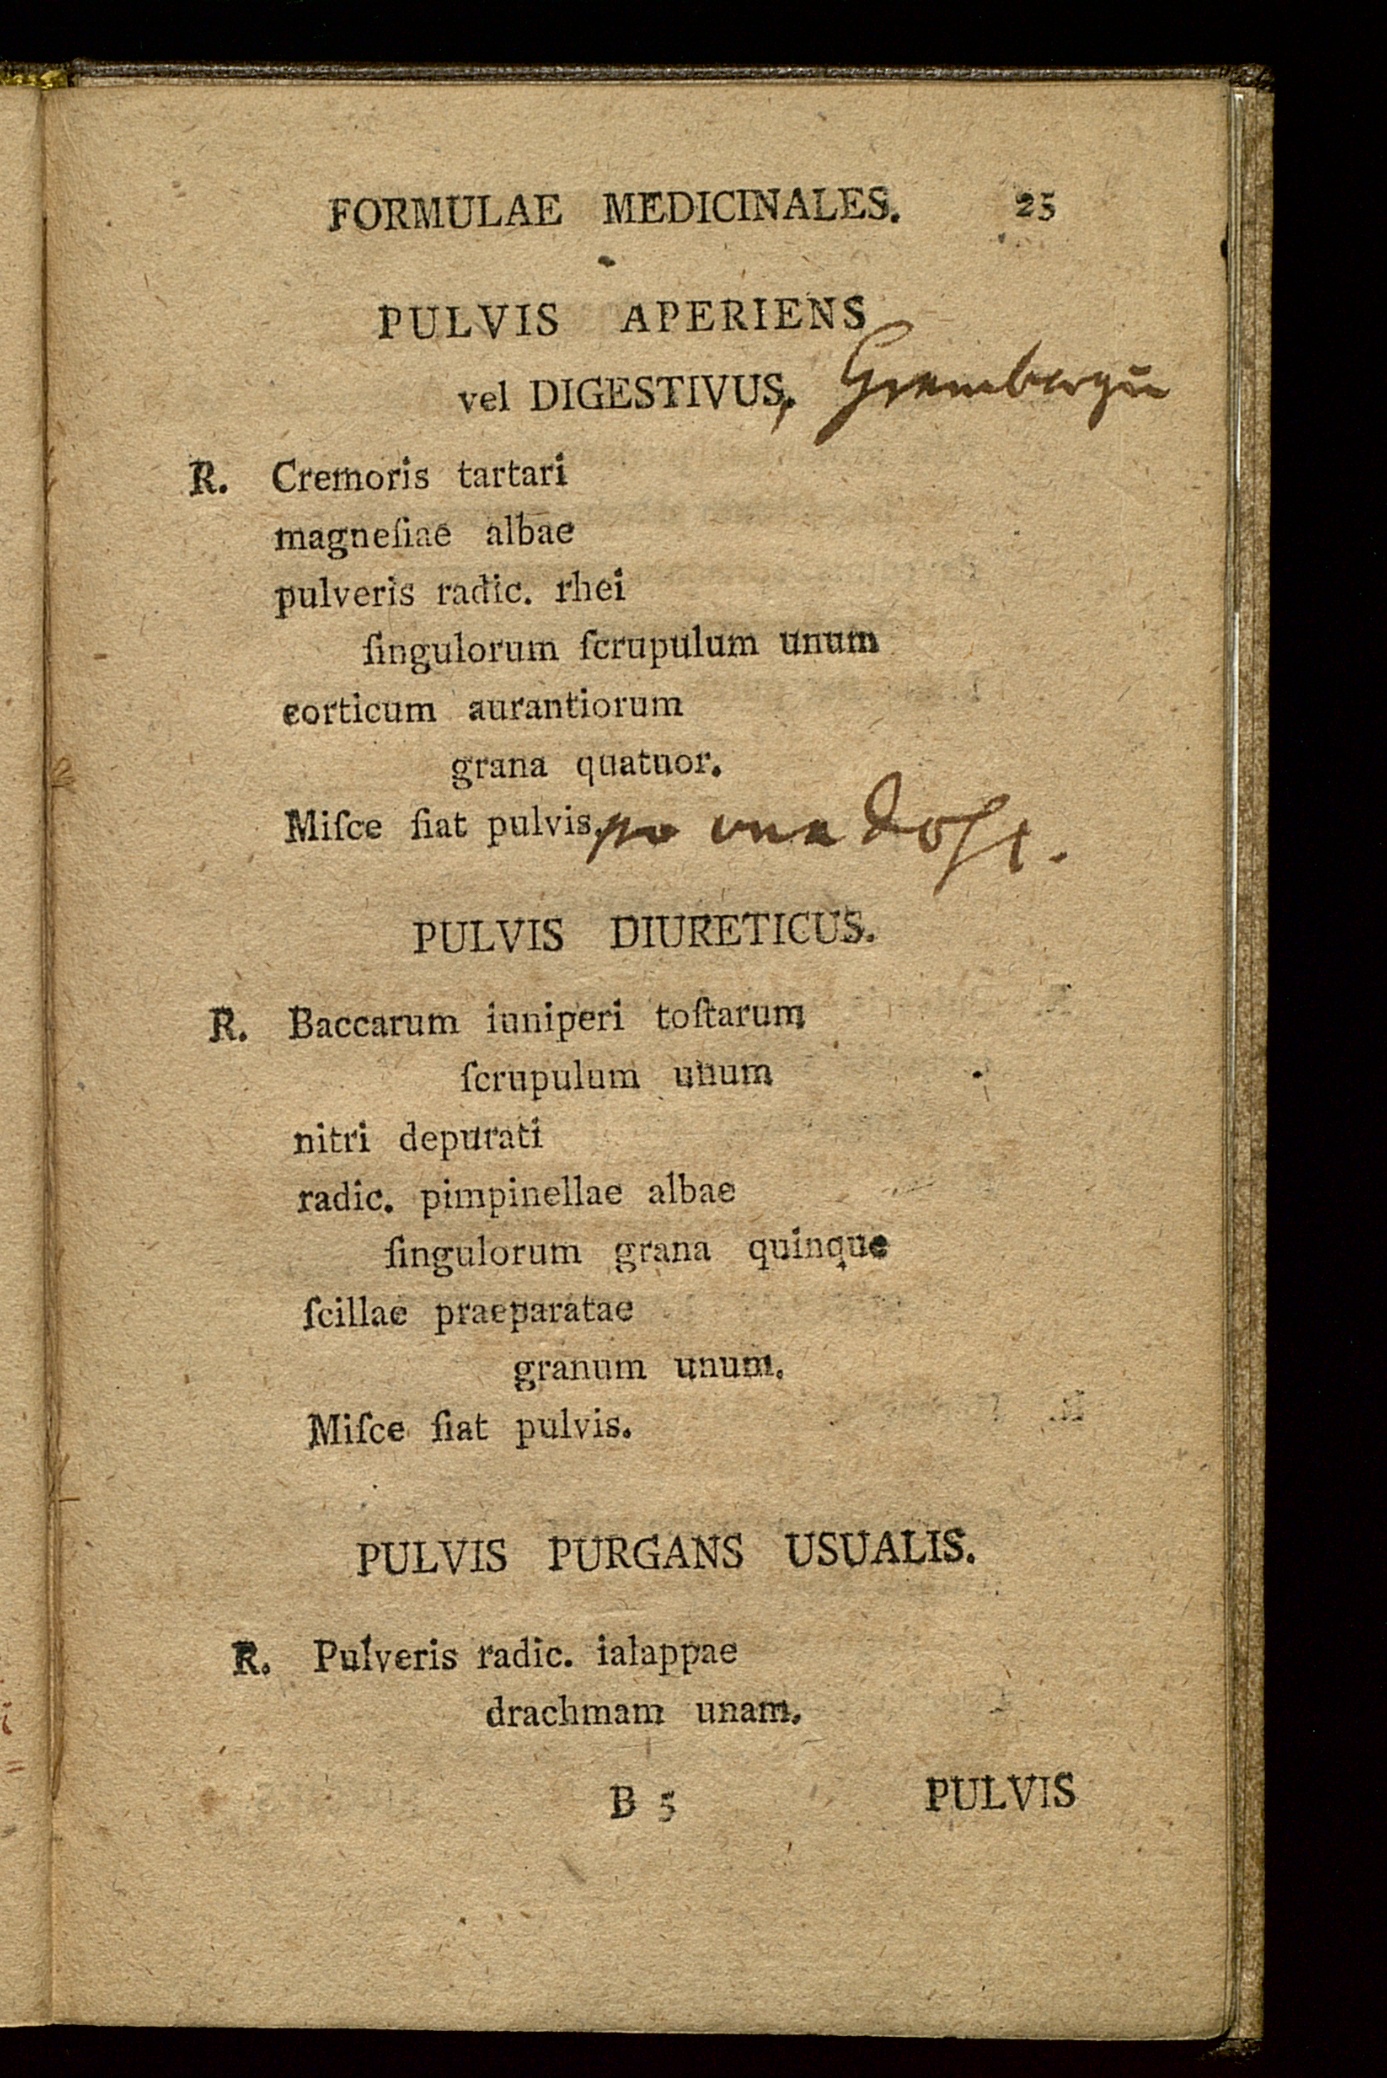 FORMULAE MEDICINALES. 25
PULVIS APERIENS
vel DIGESTIVUS,
R. Cremoris tartari
magneſiae albae
pulveris radic. rhei
ſingulorum ſcrupulum unum
corticum aurantiorum
grana quatuor.
Miſce fiat pulvis. pro una doſi.
PULVIS DIURETICUS.
R. Baccarum iuniperi toſtarum
ſcrupulum unum
nitri depurati
radic. pimpinellae albae
ſingulorum grana quinque
ſcillae praeparatae
granum unum.
Miſce fiat pulvis.
PULVIS PURGANS USUALIS.
R. Pulveris radic. ialappae
drachmam unam.
B 5 PULVIS